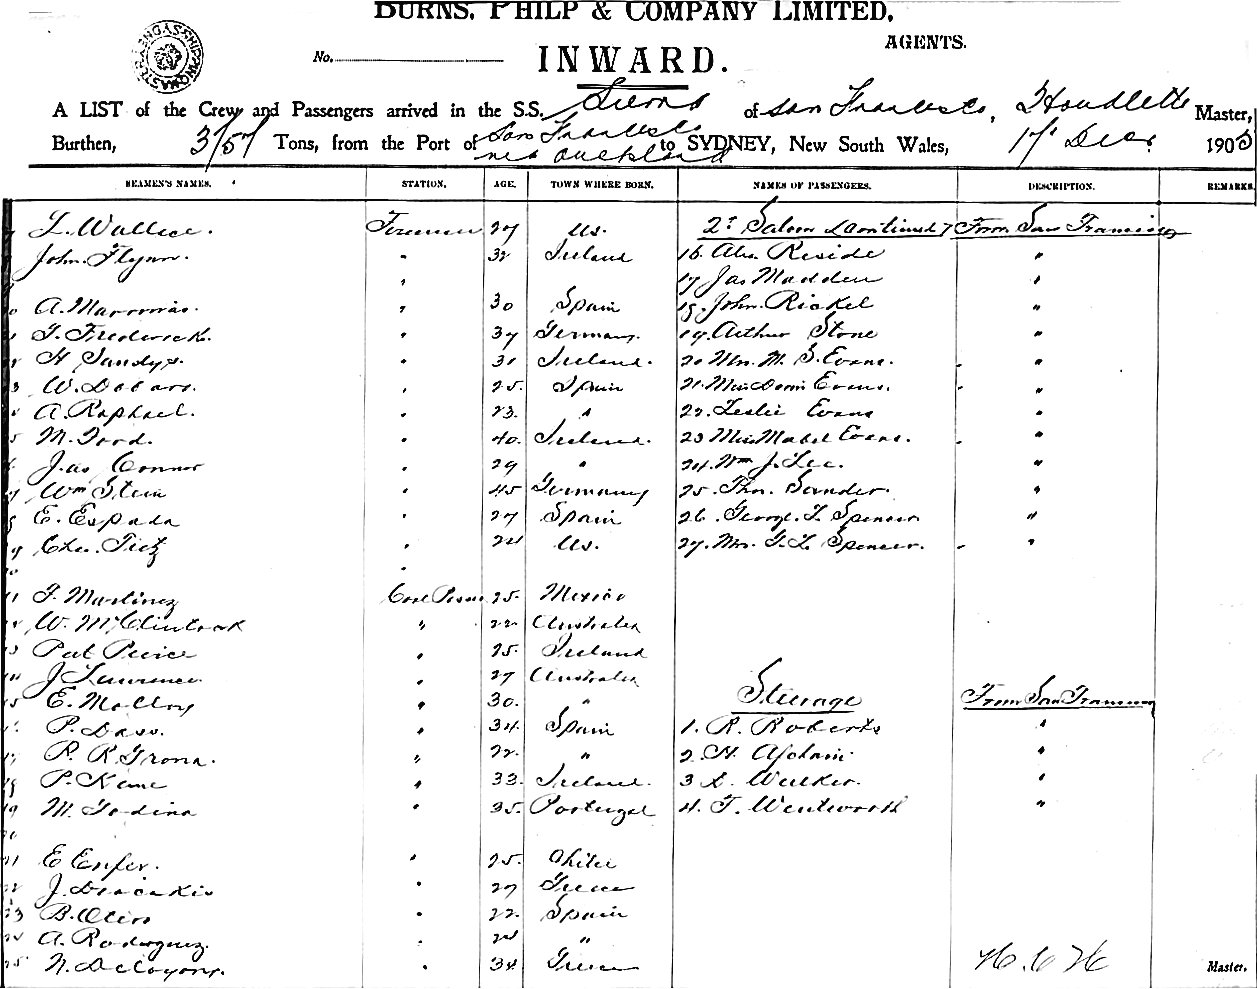 BURNS, PHILP & COMPANY LIMITED,
AGENTS.
No.
INWARD.
A LIST of the Crew and Passengers arrived in the S.S. Sierra of San Francisco, Houdlette Master,
Burthen, 3157 Tons, from the Port of San Francisco to SYDNEY, New South Wales, 17 Dec. 1903
Auckland
SEAMEN'S NAMES. STATION. AGE. TOWN WHERE BORN. NAMES OF PASSENGERS. DESCRIPTION. REMARKS.
L. Wallace. Firemen 27 US. 2nd Saloon (continued) From San Francisco
John Flynn. " 32 Ireland 16. Alex Reside "
" 17 Jas Madden "
A. " 30 Spain 18. John Rickel "
Frederick. " 37 Germany. 19. Arthur Stone "
H Sandys. " 31 Ireland. 20 Mrs. M. S. Evans. "
W. " 25. Spain 21. Miss Evans. "
A. Raphael. " 23. " 22. Leslie Evans "
M. Ford. " 40. Ireland. 23 Miss Mabel Evans. "
Jas Connor " 29 " 24. Wm J. Lee. "
Wm Stein " 45 Germany 25. Thos. Sander. "
E. Espada " 27 Spain 26. George L Spencer "
Chas. Tietz " 24 US. 27. Mrs. G. L. Spencer. "
"
F. Martinez Coal Passer 25. Mexico
W. McClintock " 22. Australia
Pat Peirce " 25. Ireland
J Lawrence. " 27 Australia
E. McClory " 30. " Steerage From San Francisco
P. Dass. " 34. Spain 1. R. Roberts "
R. R. Grona. " 22. " 2 H "
P. Kane " 33. Ireland. 3 Walker. "
M. Godina " 35. Portugal 4. T. Wentworth "
E " 25. Chile
J. " 27 Greece
B. " 22. Spain
A. Rodriguez. " 24 "
N. " 34 Greece H.C.H Master.